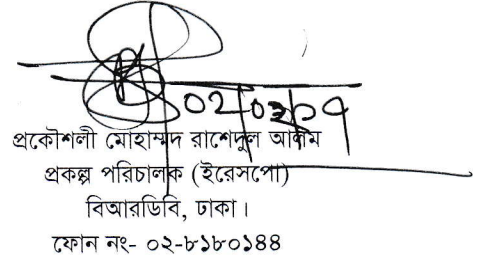 ০২/০২/১৭
প্রকৌশলী মোহাম্মদ রাশেদুল আলম
প্রকল্প পরিচালক (ইরেসপো)
বিআরডিবি, ঢাকা।
ফোন নং- ০২-৮১৮০১৪৪